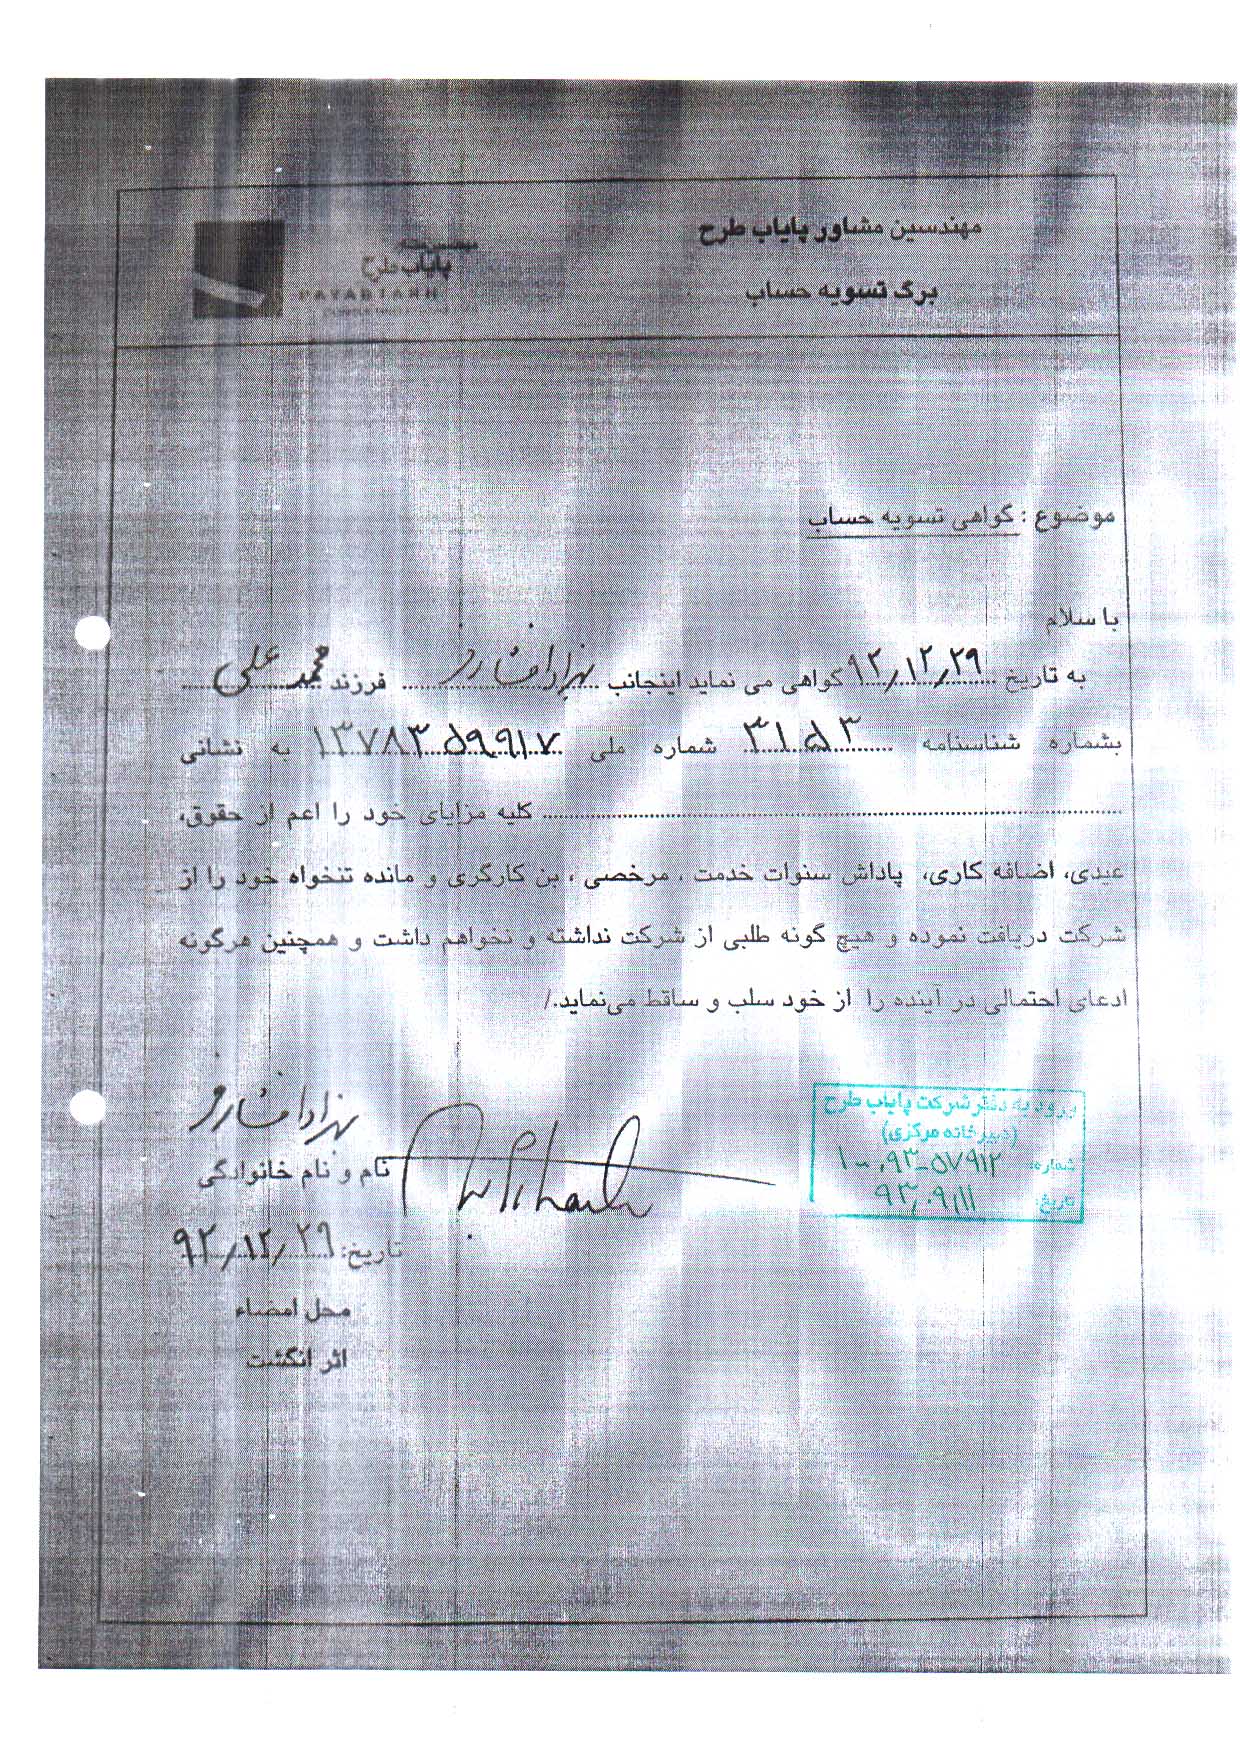 مهندسین مشاور پایاب طرح
برگ تسویه حساب
پایاب طرح
PAYABTARH
موضوع : گواهی تسویه حساب
با سلام
به تاریخ ۹۲/۱۲/۲۹ گواهی می نماید اینجانب بهزاد افشار فر فرزند محمد علی
بشماره شناسنامه ۳۱۵۳ شماره ملی ۱۳۷۸۳۵۹۹۱۷ به نشانی
کلیه مزایای خود را اعم از حقوق،
عیدی، اضافه کاری، پاداش سنوات خدمت ، مرخصی ، بن کارگری و مانده تنخواه خود را از
شرکت دریافت نموده و هیچ گونه طلبی از شرکت نداشته و نخواهم داشت و همچنین هرگونه
ادعای احتمالی در آینده را از خود سلب و ساقط می‌نماید./
ورود به دفتر شرکت پایاب طرح
(دبیرخانه مرکزی)
شماره: ۹۳-۵۷۹۱۲
تاریخ: ۹۳/۰۹/۱۱
بهزاد افشار فر
نام و نام خانوادگی
تاریخ: ۹۲/۱۲/۲۹
محل امضاء
اثر انگشت